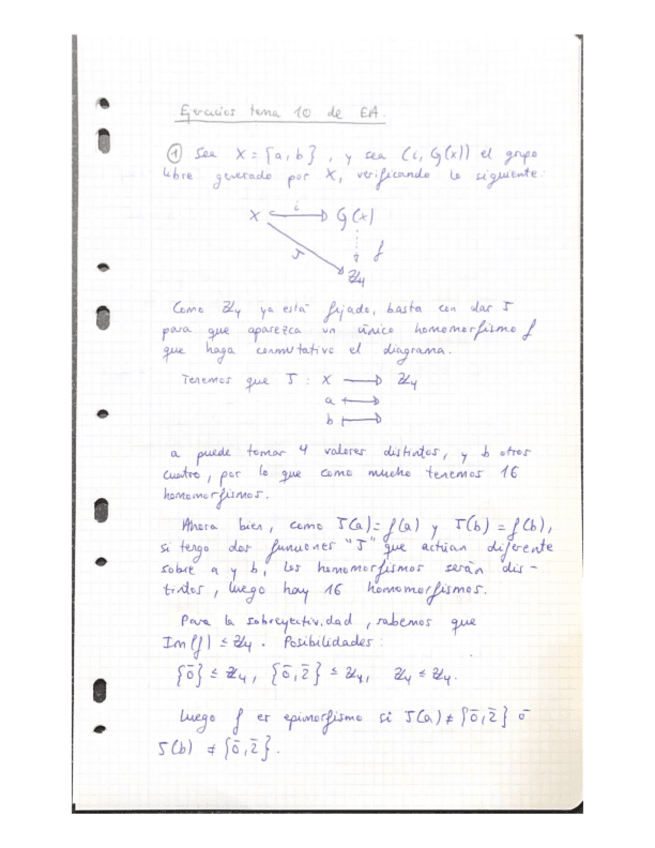 Ejercicios tema 10 de EA.
① Sea X = {a, b}, y sea (i, G(x)) el grupo
libre generado por X, verificando lo siguiente:
X i G(x)
J f
ℤ₄
Como ℤ₄ ya está fijado, basta con dar J
para que aparezca un único homomorfismo f
que haga conmutativo el diagrama.
Tenemos que J : X → ℤ₄
a ↦
b ↦
a puede tomar 4 valores distintos, y b otros
cuatro, por lo que como mucho tenemos 16
homomorfismos.
Ahora bien, como J(a) = f(a) y J(b) = f(b),
si tengo dos funciones "J" que actúan diferente
sobre a y b, los homomorfismos serán dis-
tintos, luego hay 16 homomorfismos.
Para la sobreyectividad, sabemos que
Im(f) ≤ ℤ₄. Posibilidades:
{0̄} ≤ ℤ₄, {0̄, 2̄} ≤ ℤ₄, ℤ₄ ≤ ℤ₄.
Luego f es epimorfismo si J(a) ∉ {0̄, 2̄} ó
J(b) ∉ {0̄, 2̄}.